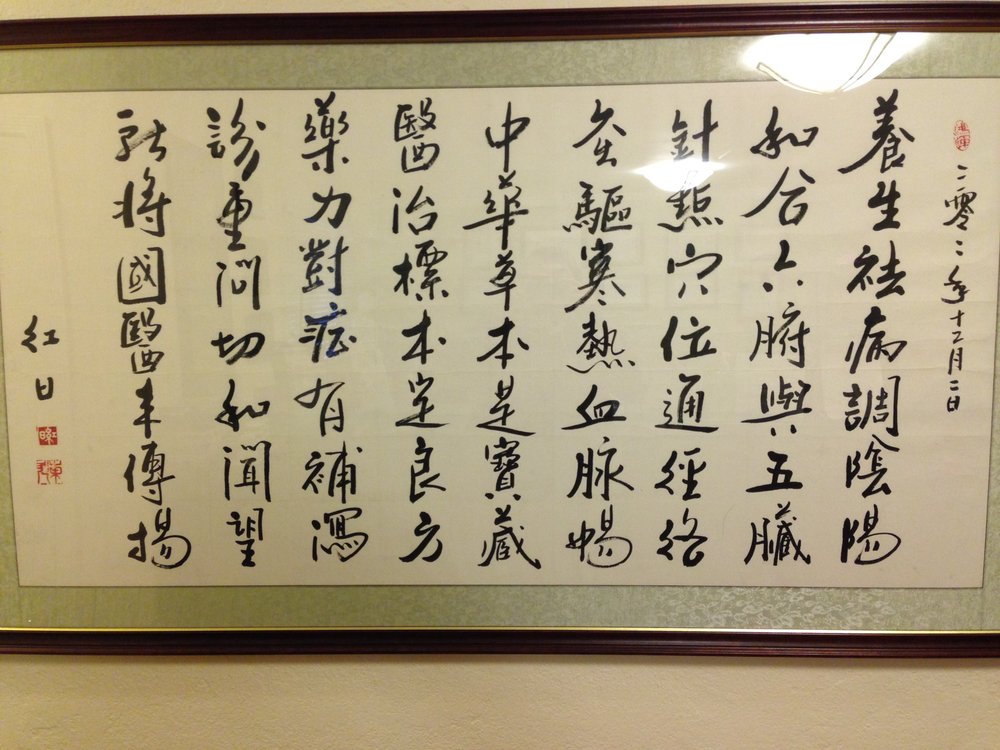 二零一二年十二月二日
養生祛病調陰陽
和合六腑與五臟
針點穴位通經絡
灸驅寒熱血脉暢
中華草本是寶藏
醫治標本定良方
藥力對症有補瀉
診重問切和聞望
將國醫來傳揚
紅日